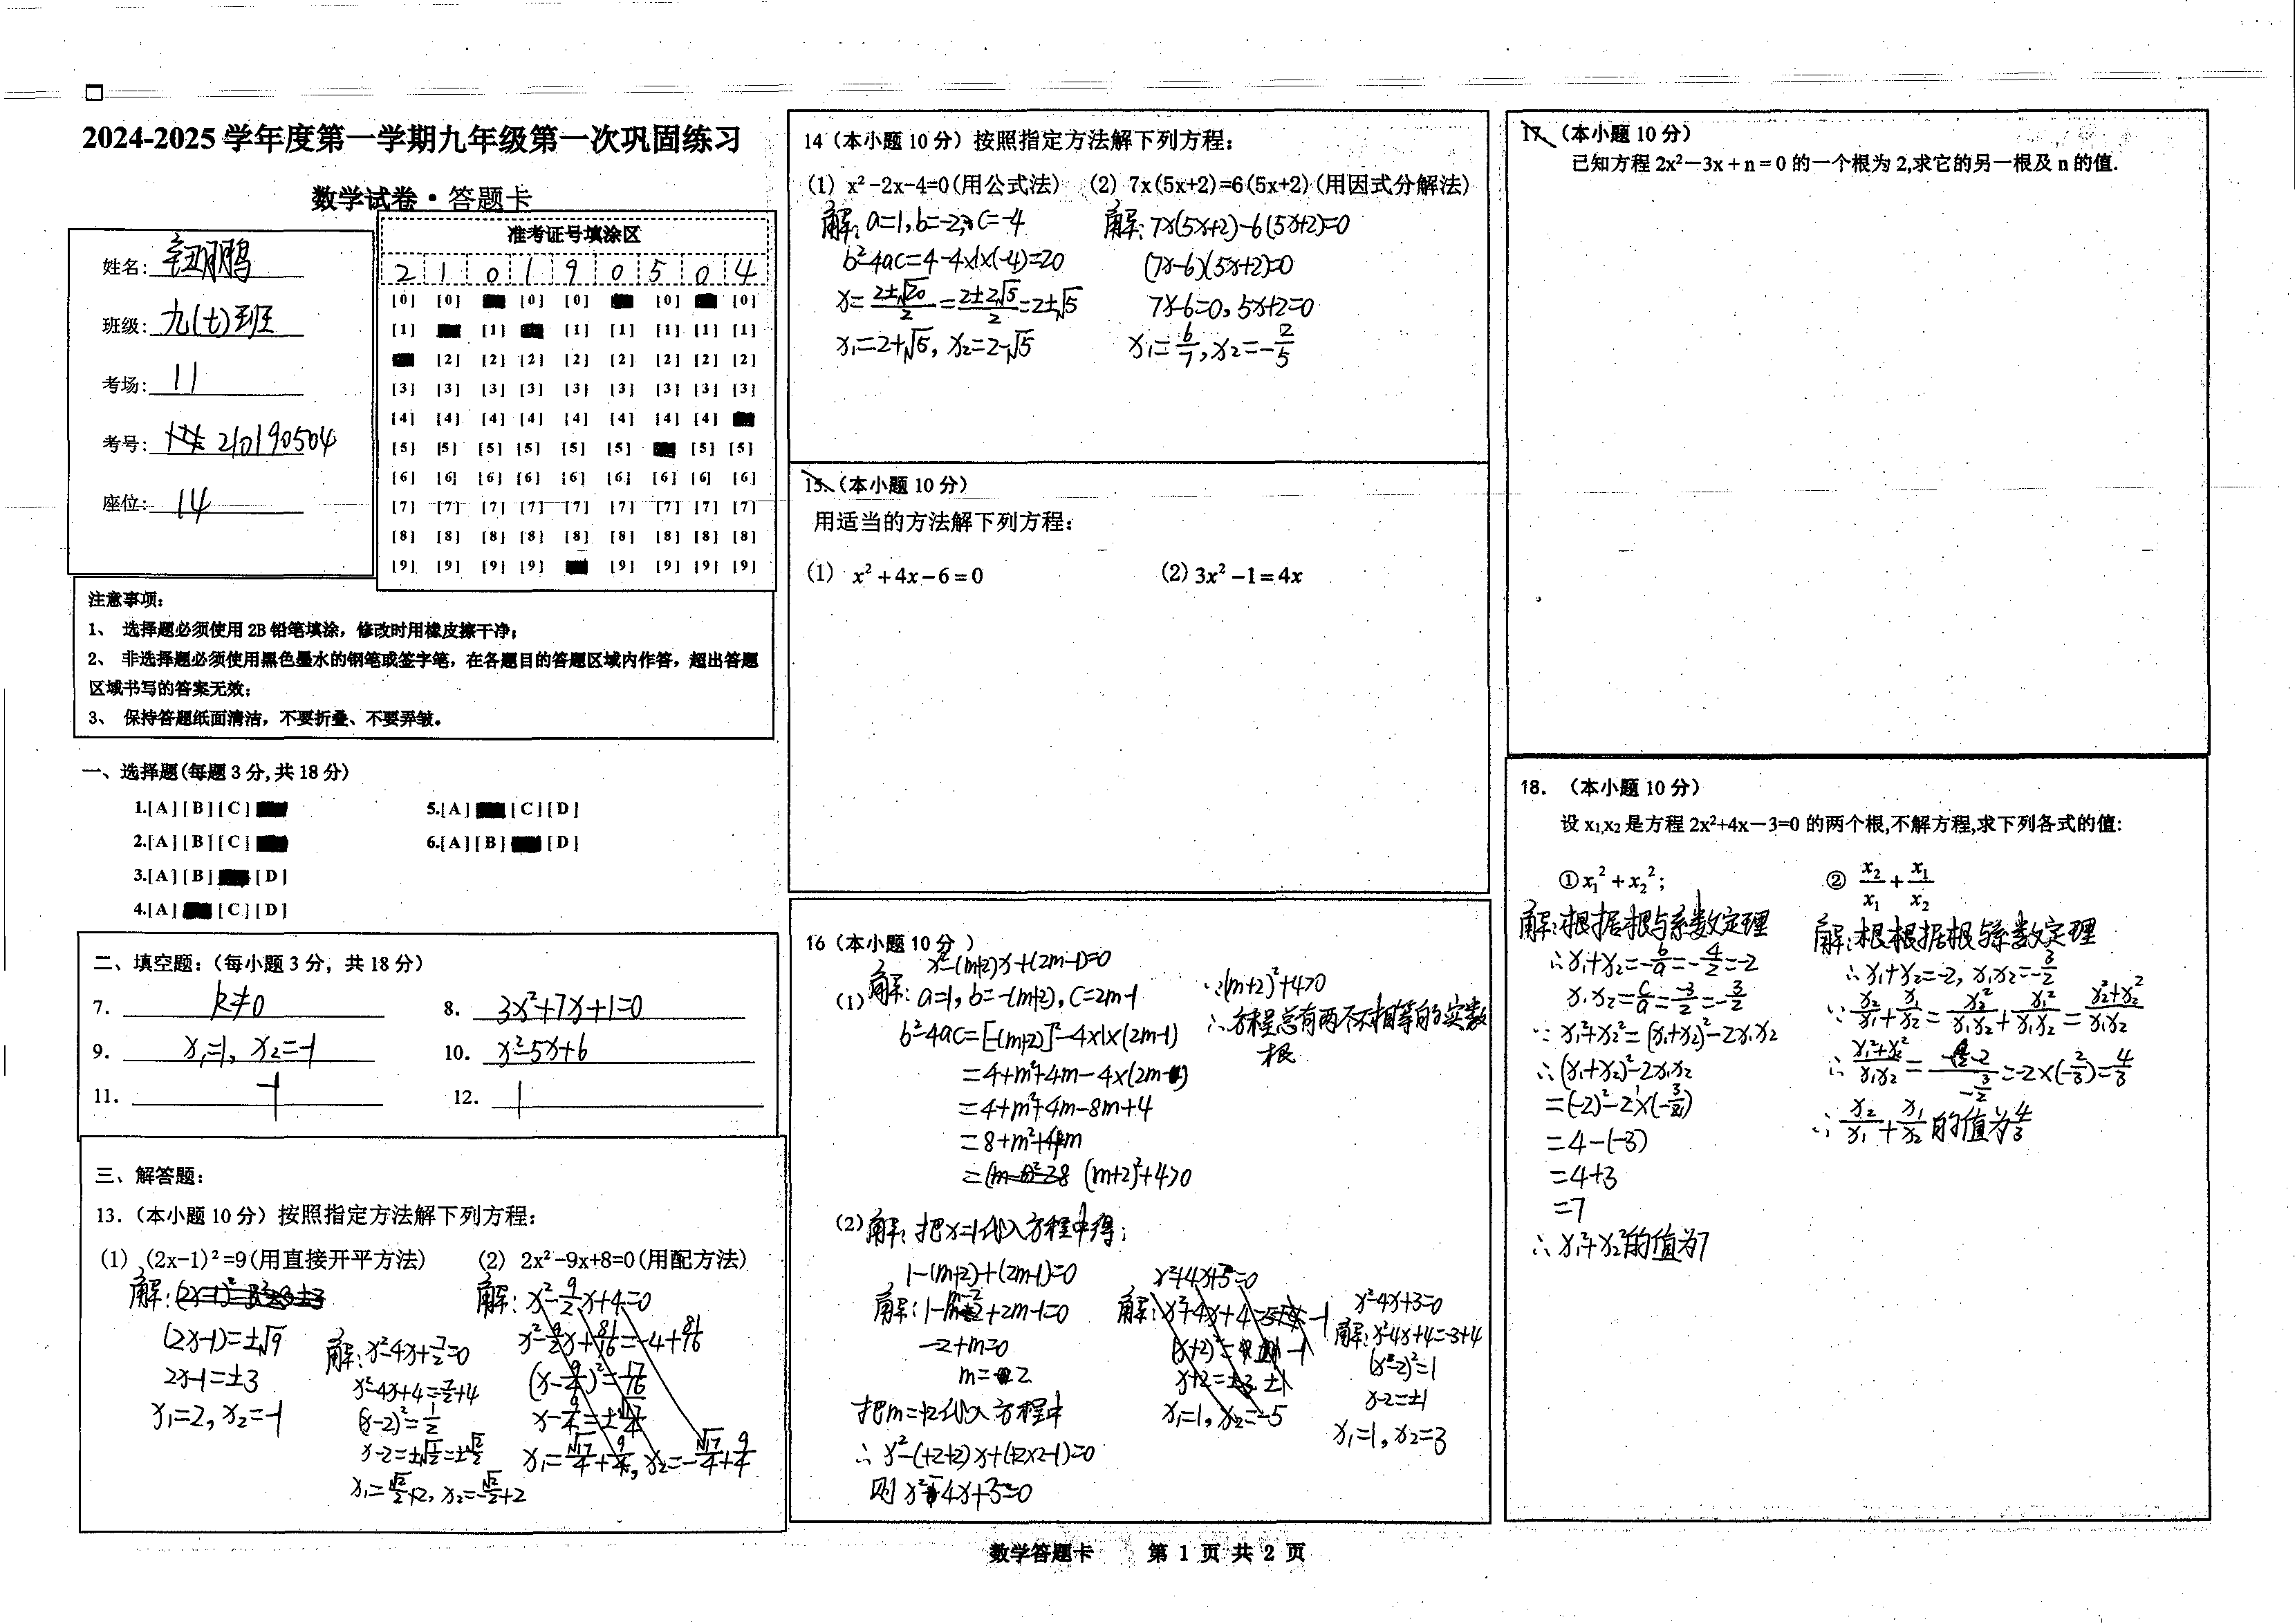 2024-2025 学年度第一学期九年级第一次巩固练习
数学试卷·答题卡
姓名:
班级: 九(七)班
考场: 11
考号: 210190504
座位: 14
准考证号填涂区
2 1 0 1 9 0 5 0 4
[0] [0] [0] [0] [0] [0]
[1] [1] [1] [1] [1] [1] [1]
[2] [2] [2] [2] [2] [2] [2] [2]
[3] [3] [3] [3] [3] [3] [3] [3] [3]
[4] [4] [4] [4] [4] [4] [4] [4]
[5] [5] [5] [5] [5] [5] [5] [5]
[6] [6] [6] [6] [6] [6] [6] [6] [6]
[7] [7] [7] [7] [7] [7] [7] [7] [7]
[8] [8] [8] [8] [8] [8] [8] [8] [8]
[9] [9] [9] [9] [9] [9] [9] [9]
注意事项:
1、 选择题必须使用 2B 铅笔填涂，修改时用橡皮擦干净；
2、 非选择题必须使用黑色墨水的钢笔或签字笔，在各题目的答题区域内作答，超出答题
区域书写的答案无效；
3、 保持答题纸面清洁，不要折叠、不要弄皱。
一、选择题(每题 3 分,共 18 分)
1.[A][B][C]
5.[A] [C][D]
2.[A][B][C]
6.[A][B] [D]
3.[A][B] [D]
4.[A] [C][D]
二、填空题:（每小题 3 分，共 18 分）
7. k≠0
8. 3x²+7x+1=0
9. x₁=1, x₂=-1
10. x²-5x+6
11. -1
12. 1
三、解答题:
13.（本小题 10 分）按照指定方法解下列方程:
(1) (2x-1)²=9(用直接开平方法)
(2x-1)=±√9
2x-1=±3
x₁=2, x₂=-1
(2) 2x²-9x+8=0(用配方法)
解: x²-9/2x+4=0
x²-9/2x+81/16=-4+81/16
(x-9/4)²=17/16
x-9/4=±√17/4
x₁=√17/4+9/4, x₂=-√17/4+9/4
解: x²-4x+7/2=0
x²-4x+4=-7/2+4
(x-2)²=1/2
x-2=±√1/2=±√2/2
x₁=√2/2+2, x₂=-√2/2+2
14（本小题 10 分）按照指定方法解下列方程:
(1) x²-2x-4=0(用公式法)
解: a=1, b=-2, c=-4
b²-4ac=4-4×1×(-4)=20
x=2±√20/2=2±2√5/2=2±√5
x₁=2+√5, x₂=2-√5
(2) 7x(5x+2)=6(5x+2)(用因式分解法)
解: 7x(5x+2)-6(5x+2)=0
(7x-6)(5x+2)=0
7x-6=0, 5x+2=0
x₁=6/7, x₂=-2/5
15.（本小题 10 分）
用适当的方法解下列方程:
(1) x²+4x-6=0
(2) 3x²-1=4x
16（本小题 10 分 ）
x²-(m+2)x+(2m-1)=0
(1) 解: a=1, b=-(m+2), c=2m-1
b²-4ac=[-(m+2)]²-4×1×(2m-1)
=4+m²+4m-4×(2m-1)
=4+m²+4m-8m+4
=8+m²+4m
= (m+2)²+4>0
∵(m+2)²+4>0
∴方程总有两个不相等的实数
根
(2) 解: 把x=1代入方程中得:
1-(m+2)+(2m-1)=0
解: 1-m-2+2m-1=0
-2+m=0
m=2
把m=+2代入方程中
∴x²-(+2+2)x+(+2×2-1)=0
则x²-4x+3=0
x²+4x+5=0
x₁=1, x₂=-5
x²-4x+3=0
解: x²-4x+4=-3+4
(x-2)²=1
x-2=±1
x₁=1, x₂=3
17.（本小题 10 分）
已知方程 2x²-3x+n=0 的一个根为 2,求它的另一根及 n 的值.
18. （本小题 10 分）
设 x₁,x₂ 是方程 2x²+4x-3=0 的两个根,不解方程,求下列各式的值:
① x₁²+x₂²;
解: 根据根与系数定理
∴x₁+x₂=-b/a=-4/2=-2
x₁x₂=c/a=-3/2=-3/2
∵x₁²+x₂²=(x₁+x₂)²-2x₁x₂
∴(x₁+x₂)²-2x₁x₂
=(-2)²-2×(-3/2)
=4-(-3)
=4+3
=7
∴x₁²+x₂²的值为7
② x₂/x₁+x₁/x₂
解: 根根据根与系数定理
∴x₁+x₂=-2, x₁x₂=-3/2
∵x₂/x₁+x₁/x₂=x₂²/x₁x₂+x₁²/x₁x₂=x₂²+x₂²/x₁x₂
∴x₁²+x₂²/x₁x₂=-2/-3/2=-2×(-2/3)=4/3
∴x₂/x₁+x₁/x₂的值为4/3
数学答题卡 第 1 页 共 2 页